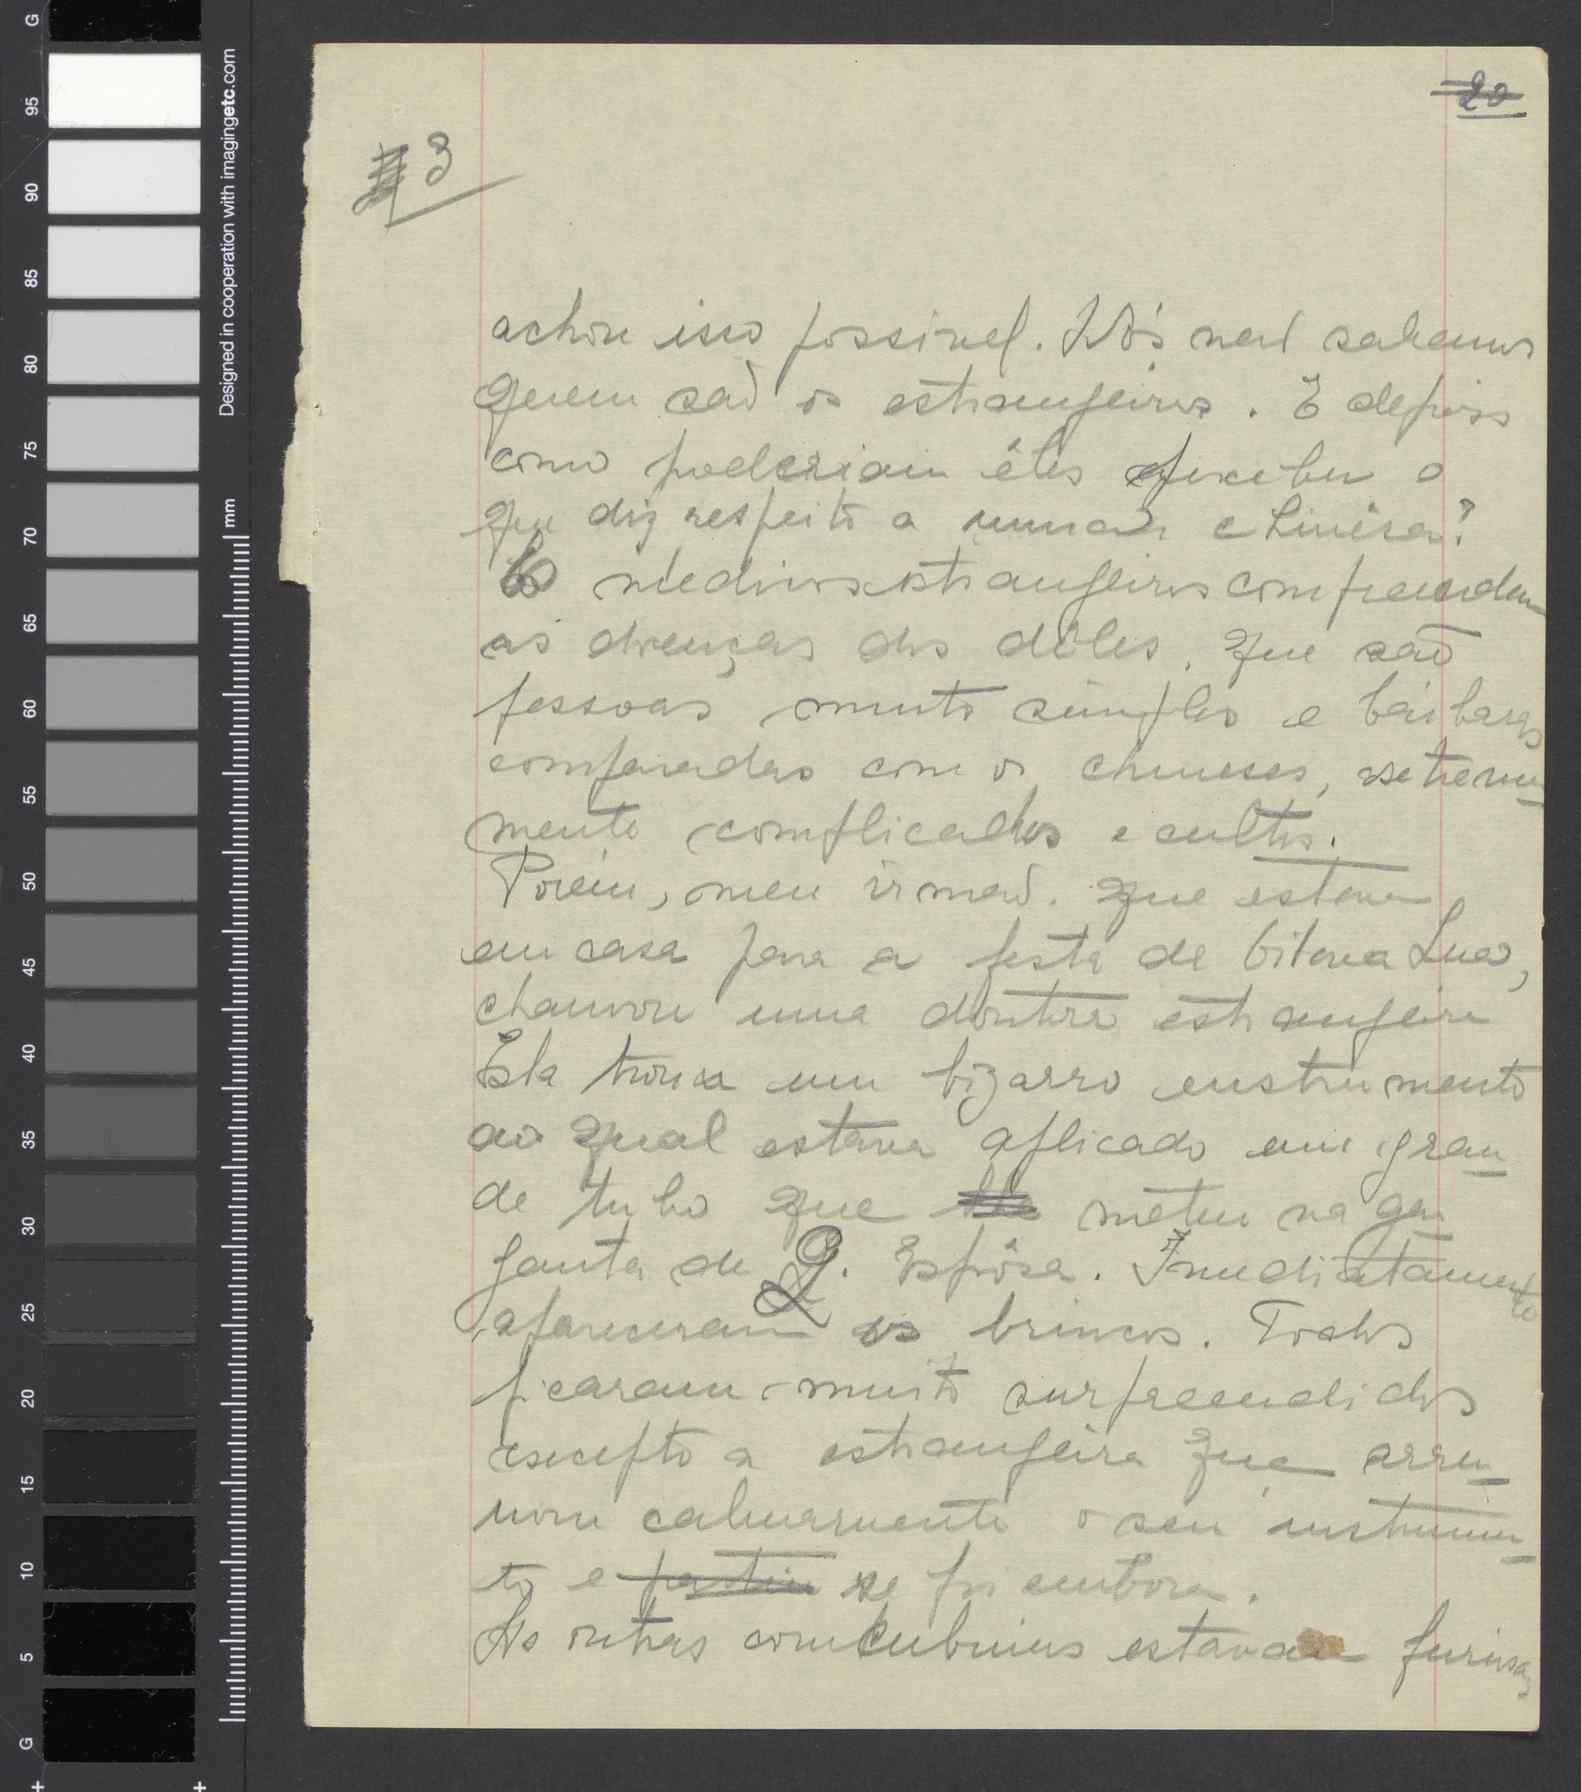 20
3
achou isso possivel. Nós nem sabemos
quem são os estrangeiros. E depois
como poderiam êles perceber o
que diz respeito a uma chinêsa?
Os medicos estrangeiros compreendem
as doenças dos dêles, que são
pessoas muito simples e bárbaras
comparadas com os chineses, extrema
mente complicados e cultos.
Porém, meu irmão, que estava
em casa para a festa de Oitava Lua,
chamou uma doutora estrangeira
Ela trouxe um bizarro enstrumento
ao qual estava aplicado um gran
de tubo que meteu na gar
ganta de 2. Espôsa. Imediatamente
apareceram os brincos. Todos
ficaram muito surpreendidos
excepto a estrangeira que arru
mou calmamente o seu instrumen
to e partiu se foi embora.
As outras concubinas estavam furiosas
Designed in cooperation with imagingetc.com
mm
G
95
90
85
80
75
70
65
60
55
50
45
40
35
30
25
20
15
10
5
G